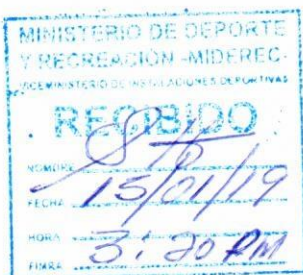 MINISTERIO DE DEPORTE
Y RECREACIÓN -MIDEREC-
VICEMINISTERIO DE INSTALACIONES DEPORTIVAS
RECIBIDO
NOMBRE
FECHA 15/01/19
HORA 3:20 PM
FIRMA